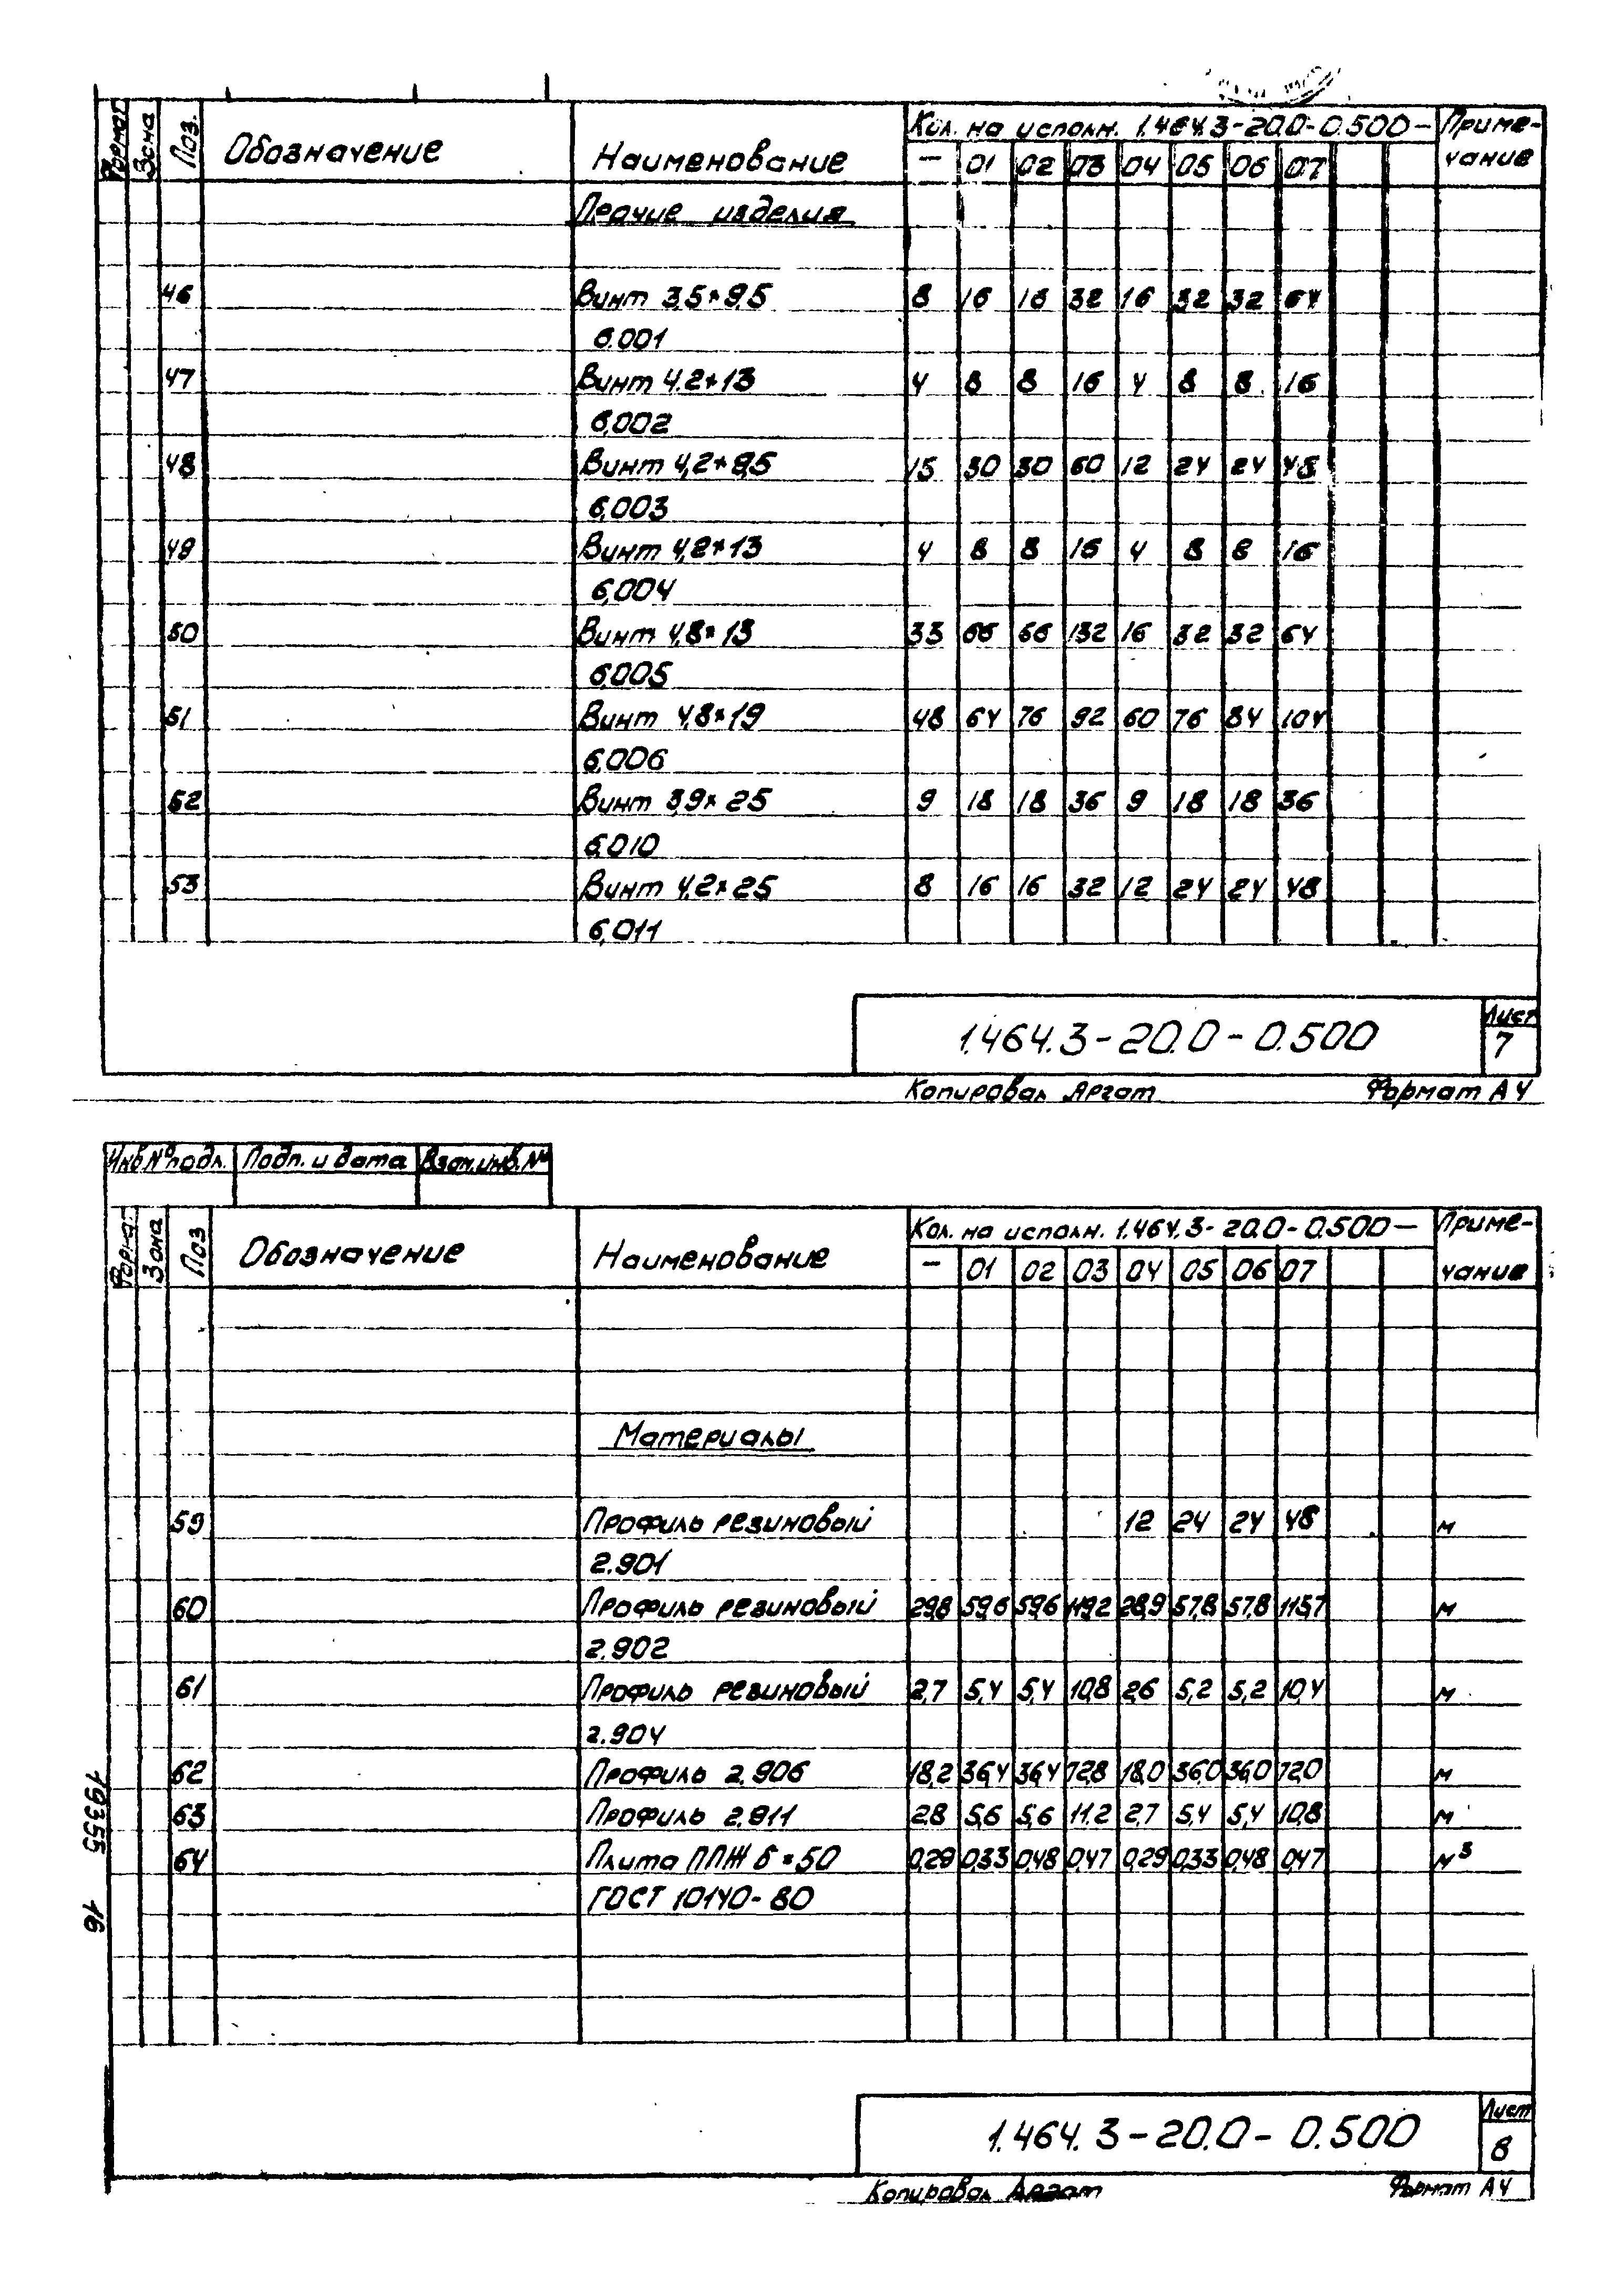 Формат Зона Поз. Обозначение Наименование Кол. на исполн. 1.464.3-20.0-0.500- Приме-
— 01 02 03 04 05 06 07 чание
Прочие изделия
46 Винт 3,5×9,5 8 16 16 32 16 32 32 64
6.001
47 Винт 4.2×13 4 8 8 16 4 8 8 16
6.002
48 Винт 4,2×9,5 15 30 30 60 12 24 24 48
6.003
49 Винт 4,2×13 4 8 8 16 4 8 8 16
6.004
50 Винт 4,8×13 33 66 66 132 16 32 32 64
6.005
51 Винт 4,8×19 48 64 76 92 60 76 84 104
6.006
52 Винт 3,9×25 9 18 18 36 9 18 18 36
6.010
53 Винт 4,2×25 8 16 16 32 12 24 24 48
6.011
1.464.3-20.0-0.500 Лист
7
Копировал Аргат Формат А4
Инв№подл. Подп. и дата Взам.инв.№
Формат Зона Поз Обозначение Наименование Кол. на исполн. 1.464.3-20.0-0.500- Приме-
— 01 02 03 04 05 06 07 чание
Материалы
59 Профиль резиновый 12 24 24 48 м
2.901
60 Профиль резиновый 29,8 59,6 59,6 119,2 28,9 57,8 57,8 115,7 м
2.902
61 Профиль резиновый 2,7 5,4 5,4 10,8 2,6 5,2 5,2 10,4 м
2.904
62 Профиль 2.906 18,2 36,4 36,4 72,8 18,0 36,0 36,0 72,0 м
63 Профиль 2.911 2,8 5,6 5,6 11,2 2,7 5,4 5,4 10,8 м
64 Плита ППЖ δ=50 0,29 0,33 0,48 0,47 0,29 0,33 0,48 0,47 м³
ГОСТ 10140-80
19355 16
1.464.3-20.0-0.500 Лист
8
Копировал Аргат Формат А4